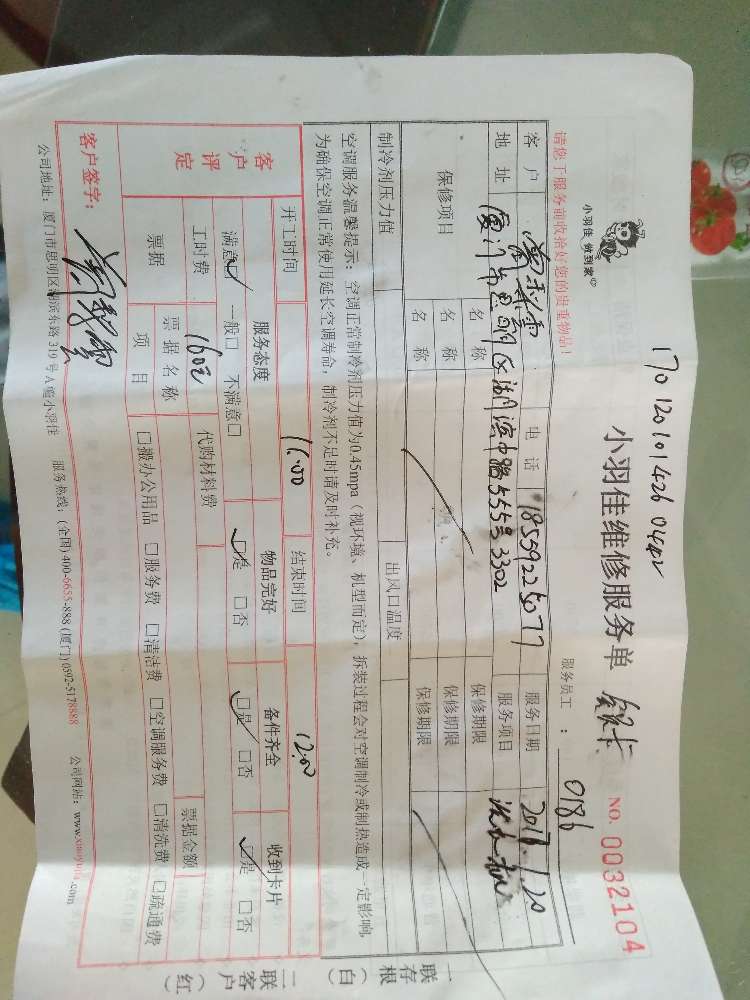 170 120101426 0442
小羽佳 做到家
小羽佳维修服务单
NO. 0032104
请您于服务前收拾好您的贵重物品!
服务员工: 0186
客户
电话 18559225077
服务日期 2017.1.20
地址 厦门市思明区湖滨中路555号3302
服务项目
保修项目
名称
保修期限
名称
保修期限
名称
保修期限
制冷剂压力值
出风口温度
空调服务温馨提示: 空调正常制冷剂压力值为0.45mpa (视环境、机型而定), 拆装过程会对空调制冷或制热造成一定影响,
为确保空调正常使用延长空调寿命, 制冷剂不足时请及时补充。
开工时间 11:00
结束时间 12:00
客户评定
服务态度
物品完好
备件齐全
收到卡片
满意☑ 一般☐ 不满意☐
☑是 ☐否
☑是 ☐否
☑是 ☐否
工时费 160元
代购材料费
票据
票据名称
票据金额
项目
☐搬办公用品 ☐服务费 ☐清洁费 ☐空调服务费 ☐清洗费 ☐疏通费
客户签字:
公司地址: 厦门市思明区湖滨东路319号A幢小羽佳
服务热线: (全国) 400-6655-888 (厦门) 0592-5178888
公司网站: www.xiaoyujia.com
一联存根(白)
二联客户(红)